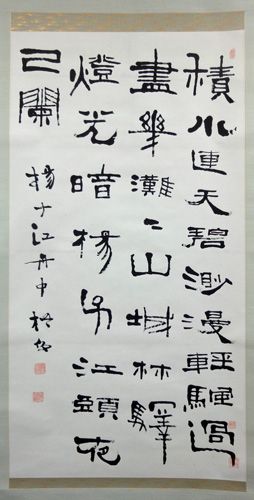 積水連天碧渺漫輕颿過
盡幾灘〻山城林驛
燈光暗楊子江頭夜
已闌
揚子江舟中